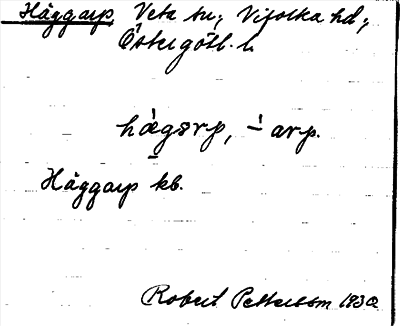 Häggarp Veta sn; Vifolka hd;
Östergötl. l.
hǽgərp, -́ arp.
Häggarp kb.
Robert Pettersson 1930